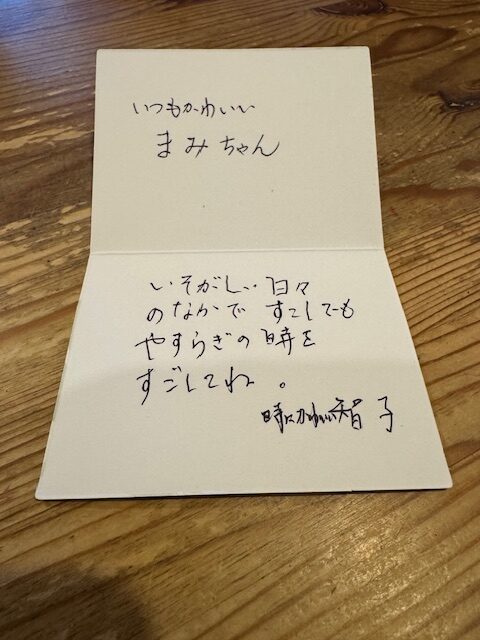 いつもかわいい
まみちゃん
いそがしい日々
のなかで すこしでも
やすらぎの時を
すごしてね。
時にかわいい智子